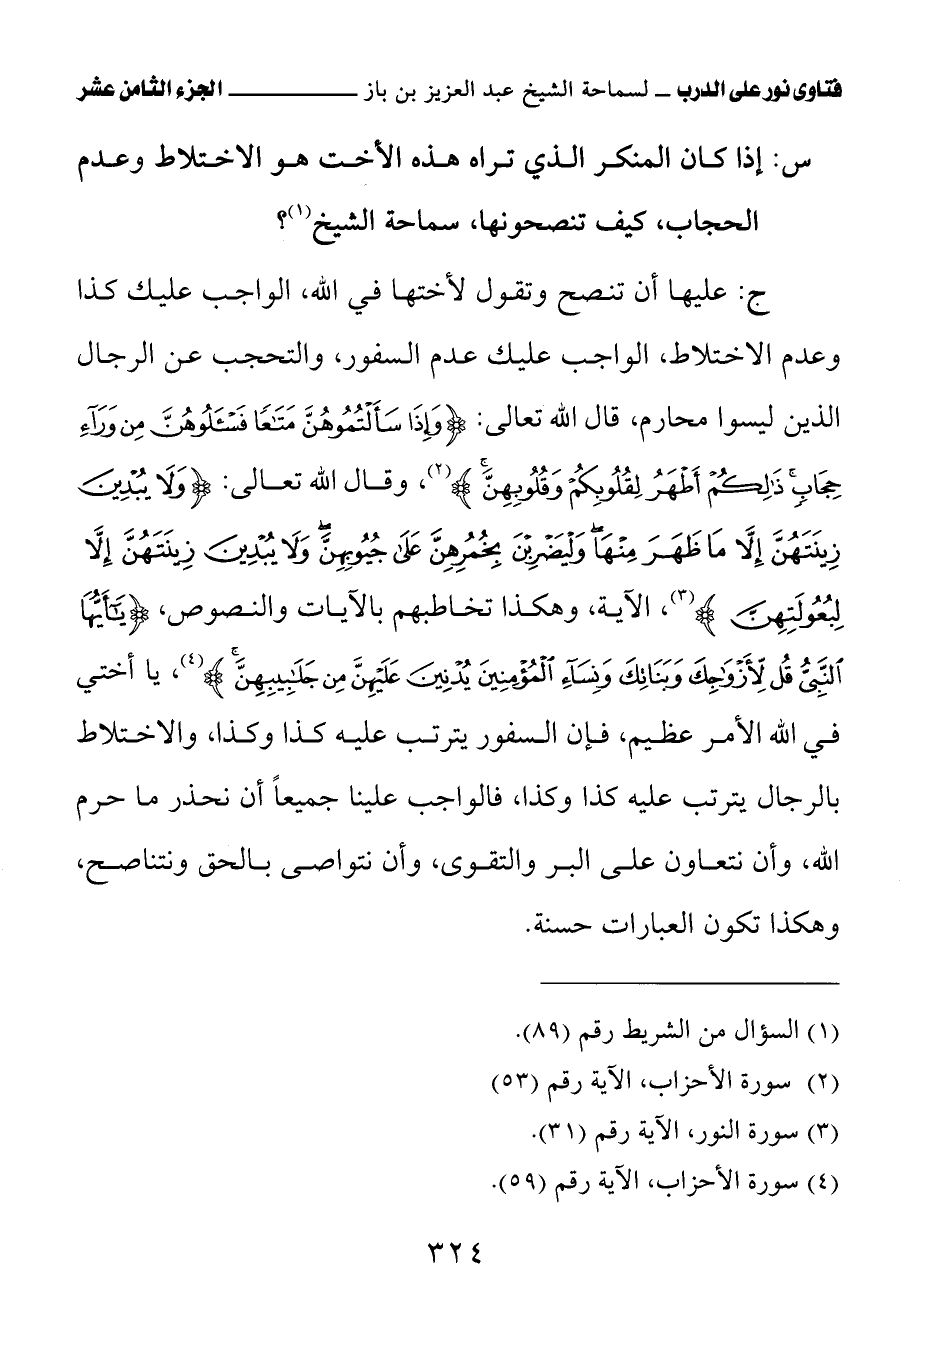 فتاوى نور على الدرب ــ لسماحة الشيخ عبد العزيز بن باز ــــــــــــــ الجزء الثامن عشر
س: إذا كان المنكر الذي تراه هذه الأخت هو الاختلاط وعدم
الحجاب، كيف تنصحونها، سماحة الشيخ(١)؟
ج: عليها أن تنصح وتقول لأختها في الله، الواجب عليك كذا
وعدم الاختلاط، الواجب عليك عدم السفور، والتحجب عن الرجال
الذين ليسوا محارم، قال الله تعالى: ﴿وَإِذَا سَأَلْتُمُوهُنَّ مَتَٰعًا فَسْـَٔلُوهُنَّ مِن وَرَآءِ
حِجَابٍ ۚ ذَٰلِكُمْ أَطْهَرُ لِقُلُوبِكُمْ وَقُلُوبِهِنَّ ۚ﴾(٢)، وقال الله تعالى: ﴿وَلَا يُبْدِينَ
زِينَتَهُنَّ إِلَّا مَا ظَهَرَ مِنْهَا ۖ وَلْيَضْرِبْنَ بِخُمُرِهِنَّ عَلَىٰ جُيُوبِهِنَّ ۖ وَلَا يُبْدِينَ زِينَتَهُنَّ إِلَّا
لِبُعُولَتِهِنَّ﴾(٣)، الآية، وهكذا تخاطبهم بالآيات والنصوص، ﴿يَٰٓأَيُّهَا
ٱلنَّبِىُّ قُل لِّأَزْوَٰجِكَ وَبَنَاتِكَ وَنِسَآءِ ٱلْمُؤْمِنِينَ يُدْنِينَ عَلَيْهِنَّ مِن جَلَٰبِيبِهِنَّ ۚ﴾(٤)، يا أختي
في الله الأمر عظيم، فإن السفور يترتب عليه كذا وكذا، والاختلاط
بالرجال يترتب عليه كذا وكذا، فالواجب علينا جميعاً أن نحذر ما حرم
الله، وأن نتعاون على البر والتقوى، وأن نتواصى بالحق ونتناصح،
وهكذا تكون العبارات حسنة.
(١) السؤال من الشريط رقم (٨٩).
(٢) سورة الأحزاب، الآية رقم (٥٣)
(٣) سورة النور، الآية رقم (٣١).
(٤) سورة الأحزاب، الآية رقم (٥٩).
٣٢٤